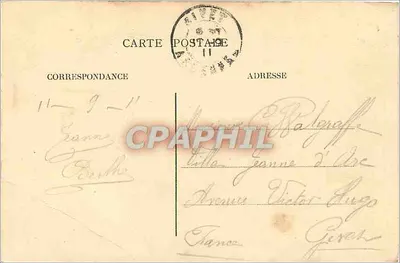 GIVET
11
CARTE POSTALE
CORRESPONDANCE
ADRESSE
11 - 9 - 11
Jeanne
Berthe
CPAPHIL
Walgraffe
Villa Jeanne d'Arc
Avenue Victor Hugo
France Givet